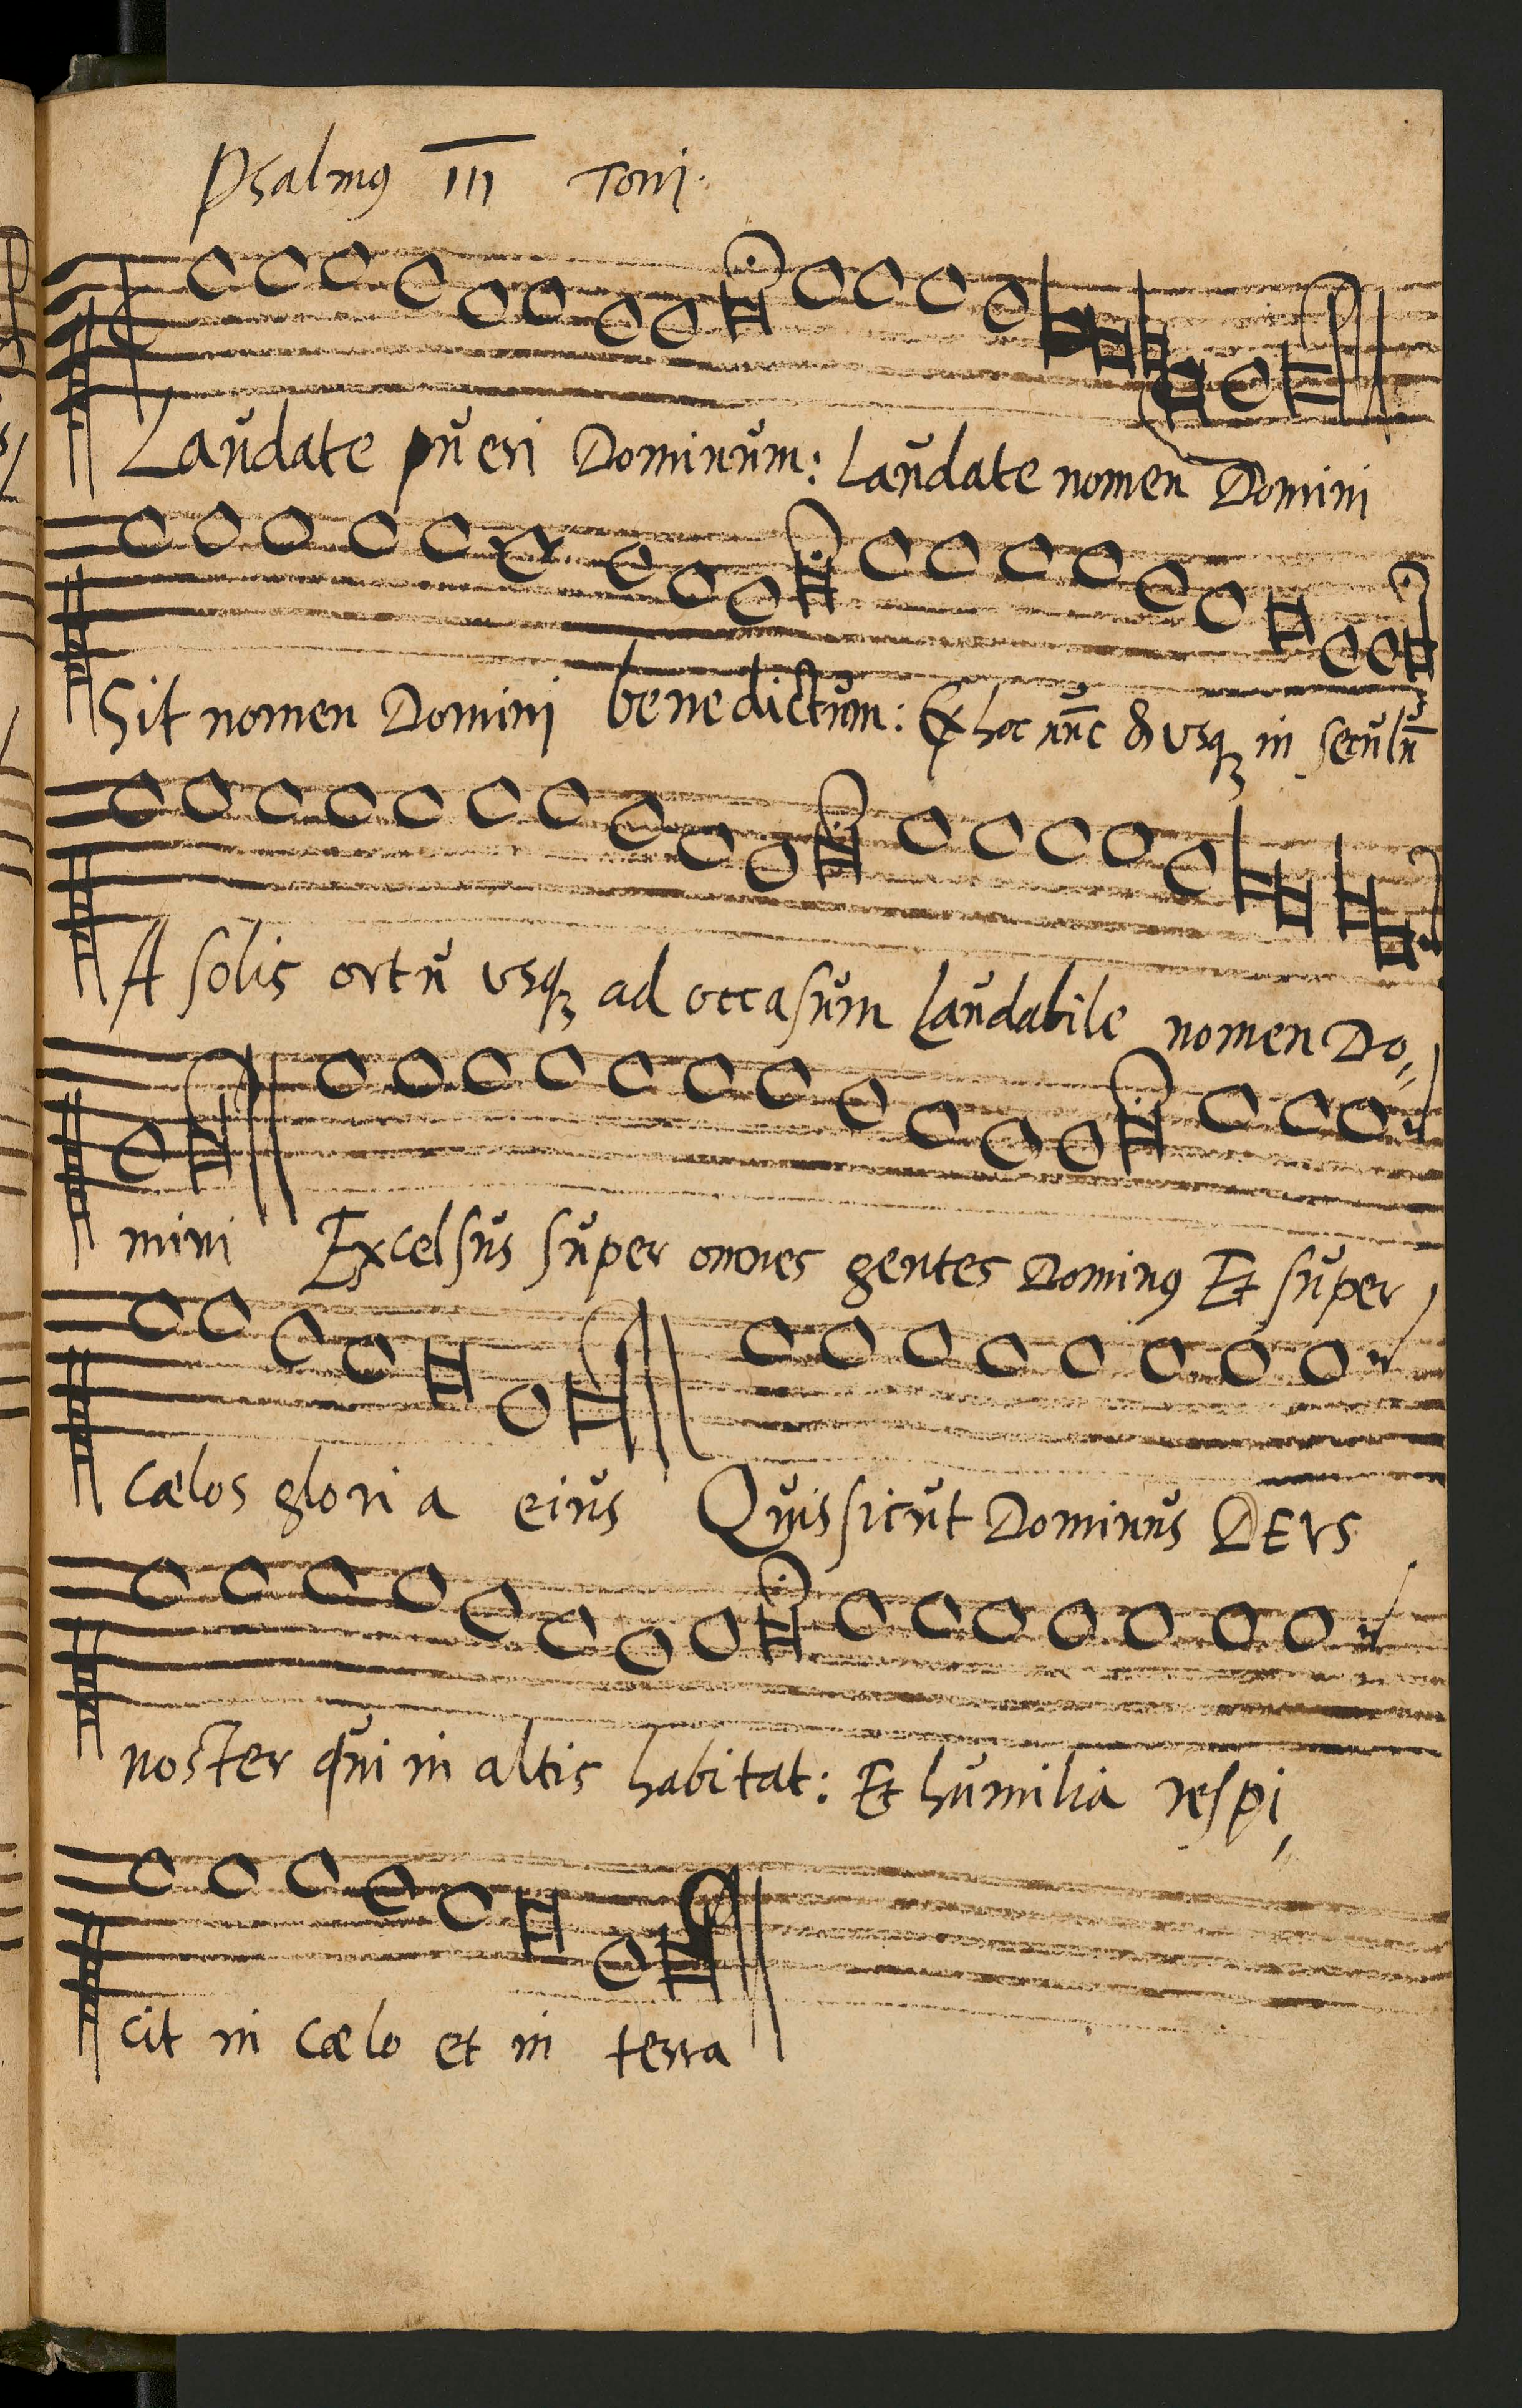 Psalmꝰ III Toni.
Laudate pueri Dominum: Laudate nomen Domini
Sit nomen Domini benedictum: Ex hoc nūc & vsqꝫ in seculū
A solis ortu vsqꝫ ad occasum laudabile nomen Do⸗
mini Excelsus super omnes gentes Dominꝰ Et super
cælos gloria eius Quis sicut Dominus DEVS
noster qui in altis habitat: Et humilia respi,
cit in cælo et in terra